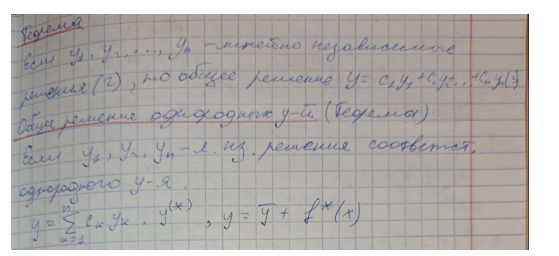 Теорема
Если y₁, y₂, ..., yₙ - линейно независимые
решения (2), то общее решение y = c₁y₁ + c₂y₂.. + cₙyₙ(
Общее решение однородных у-й. (Теорема)
Если y₁, y₂, yₙ - л. нз. решения соответст.
однородного у-я.
y = ∑ₖ₌₁ⁿ cₖ yₖ . y⁽ˣ⁾, y = y̅ + f*(x)